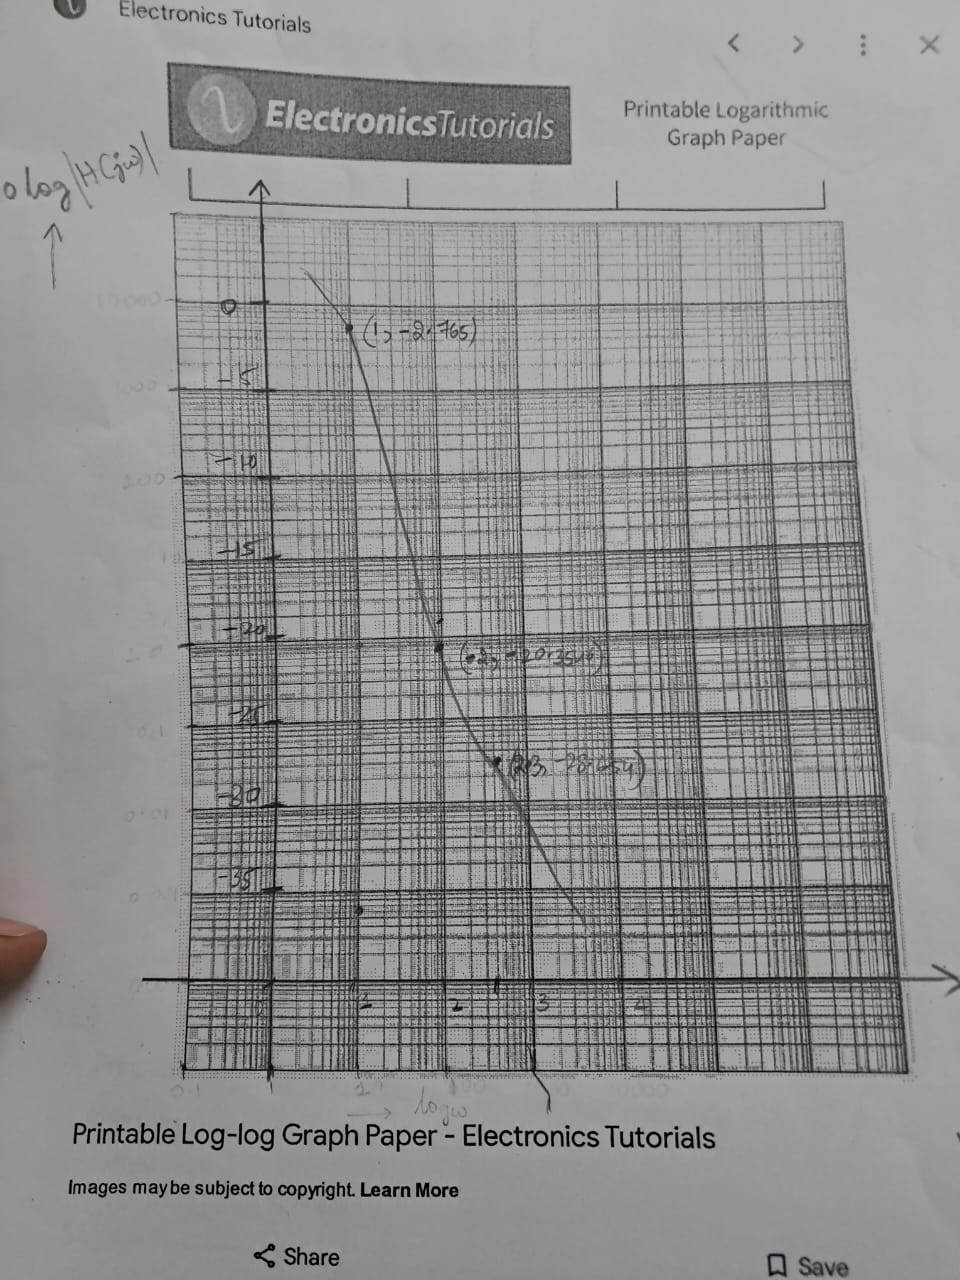 Electronics Tutorials
ElectronicsTutorials
Printable Logarithmic
Graph Paper
log|H(jω)|
0
(1, -2.765)
-5
-10
-15
-20
-25
-30
-35
0 1 2 3 4
0.1
→ logω
Printable Log-log Graph Paper - Electronics Tutorials
Images may be subject to copyright. Learn More
Share
Save